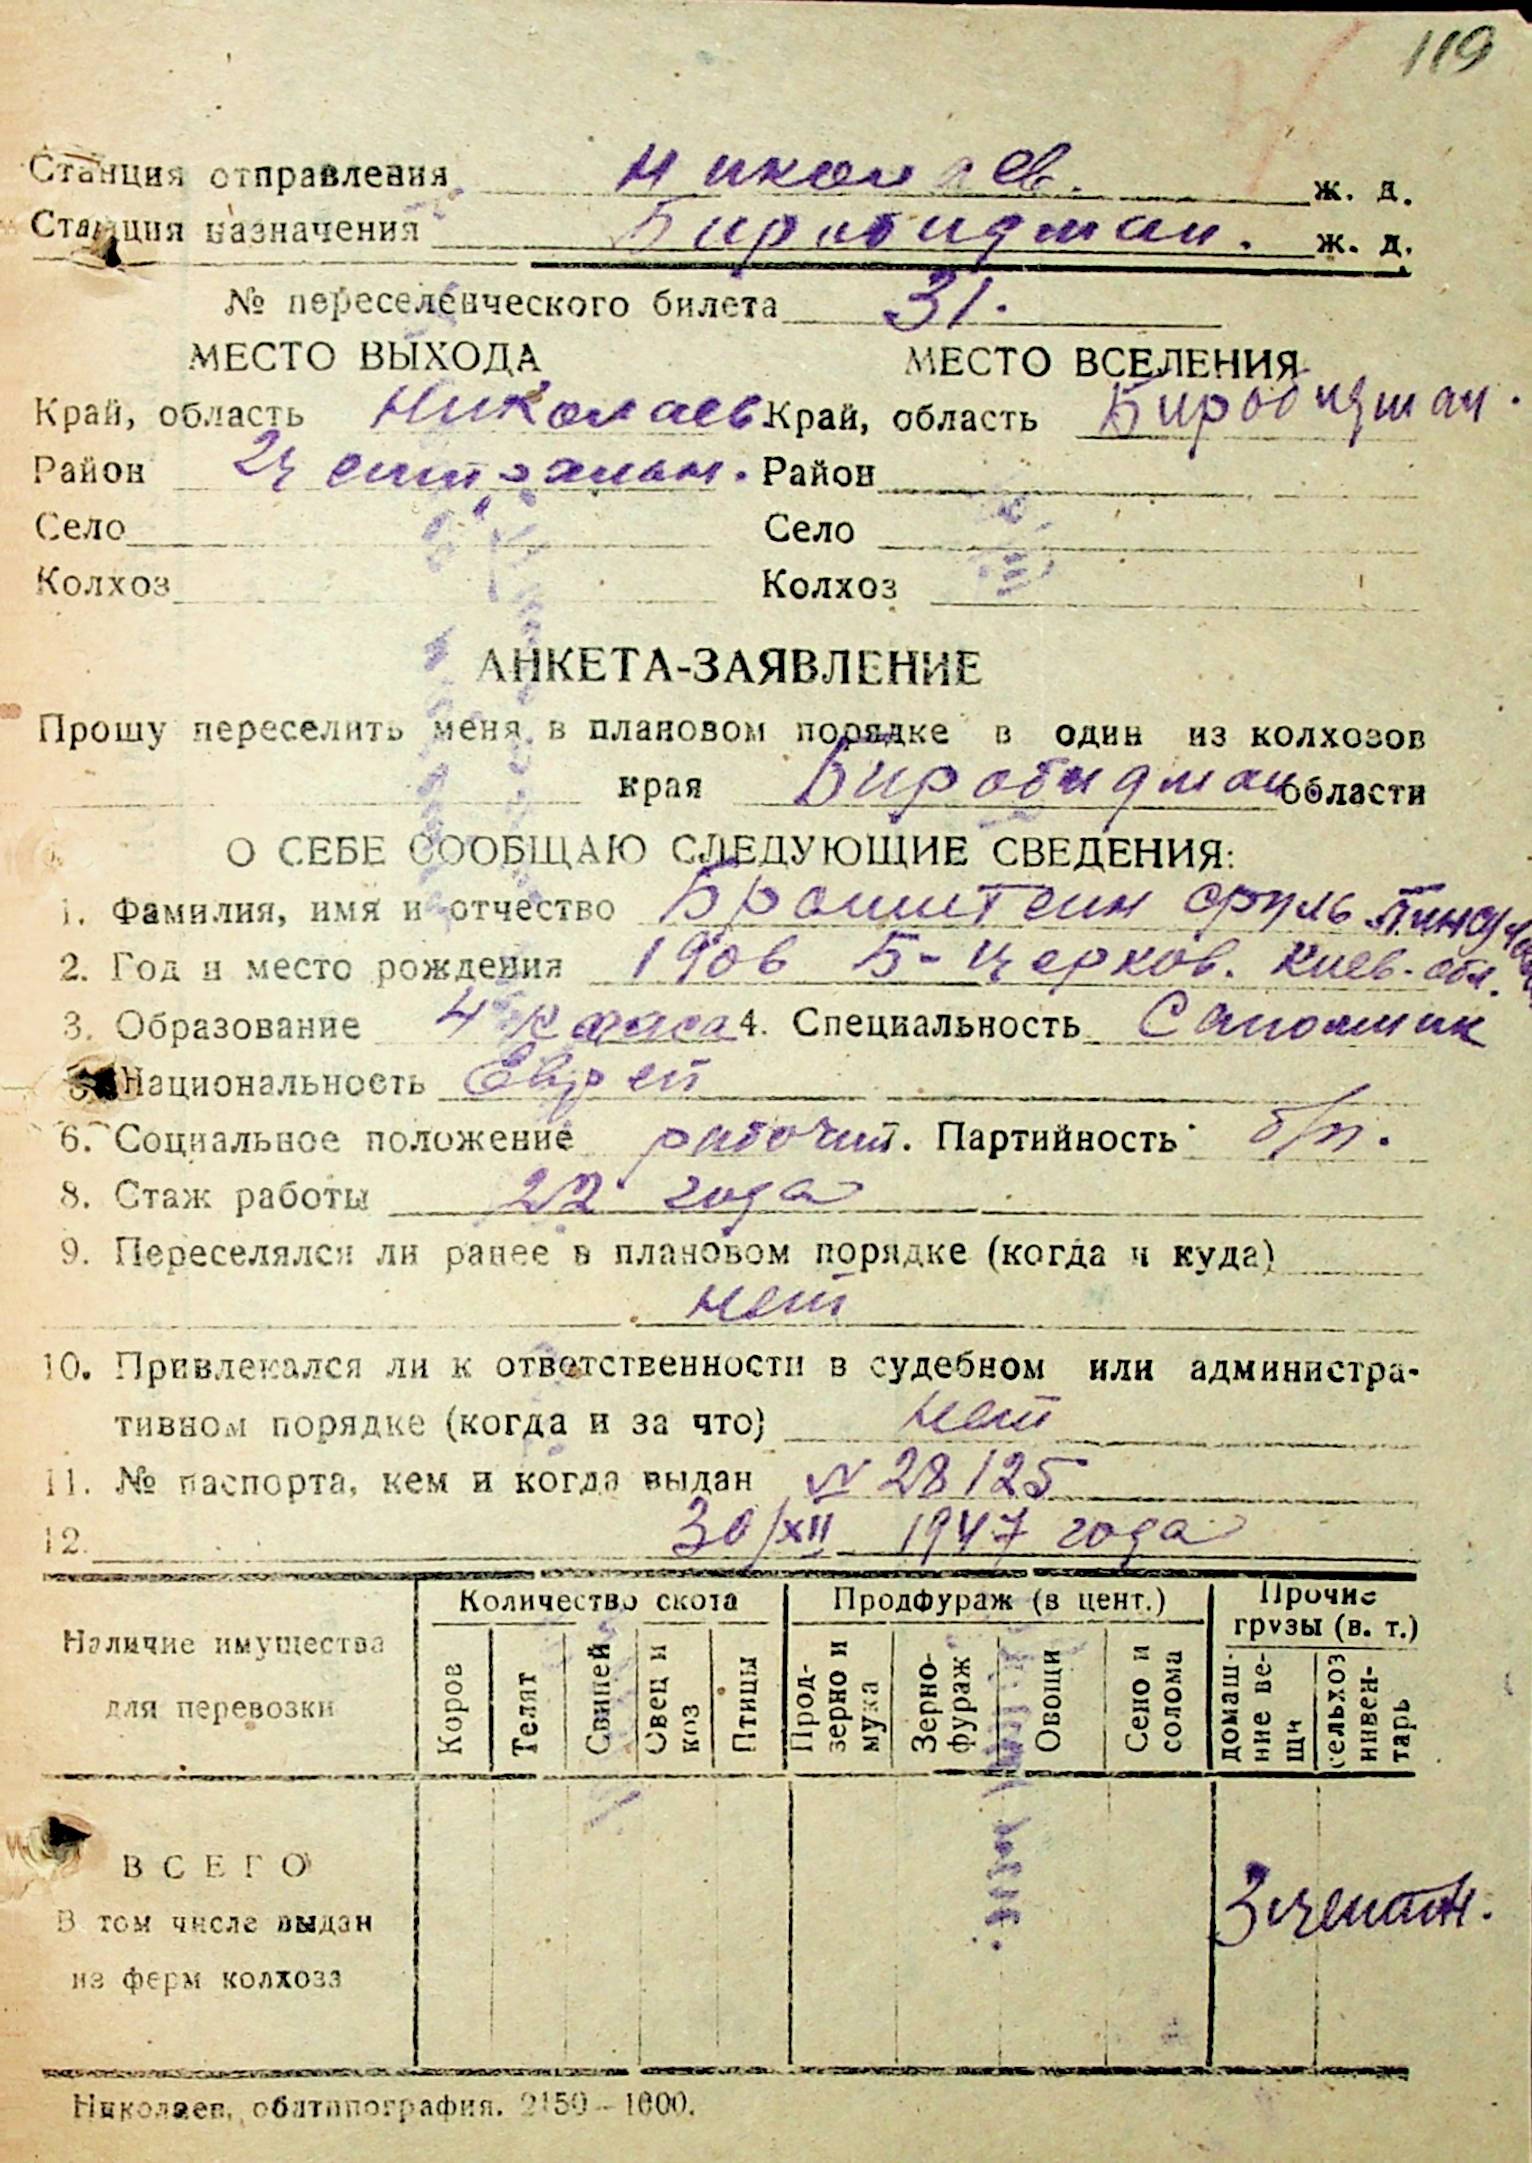 119
Станция отправления Николаев. ж. д.
Станция назначения Биробиджан. ж. д.
№ переселенческого билета 31.
МЕСТО ВЫХОДА МЕСТО ВСЕЛЕНИЯ
Край, область Николаев Край, область Биробиджан.
Район Централън. Район
Село Село
Колхоз Колхоз
АНКЕТА-ЗАЯВЛЕНИЕ
Прошу переселить меня в плановом порядке в один из колхозов
края Биробиджан области
О СЕБЕ СООБЩАЮ СЛЕДУЮЩИЕ СВЕДЕНИЯ:
1. Фамилия, имя и отчество Бронштейн Сруль
2. Год и место рождения 1906 Б-Церков. Киев. обл.
3. Образование 4 класса 4. Специальность Сапожник
5. Национальность Еврей
6. Социальное положение рабочий. Партийность б/п.
8. Стаж работы 22 года
9. Переселялся ли ранее в плановом порядке (когда и куда)
нет
10. Привлекался ли к ответственности в судебном или администра-
тивном порядке (когда и за что) нет
11. № паспорта, кем и когда выдан № 28125
12. 30/XII 1947 года
Наличие имущества для перевозки
Количество скота Продфураж (в цент.) Прочие грузы (в. т.)
Коров Телят Свиней Овец и коз Птицы Прод-зерно и мука Зерно-фураж Овощи Сено и солома домаш-ние ве-щи сельхоз инвен-тарь
ВСЕГО
В том числе выдан
из ферм колхоза
3 центн.
Николаев, облтипография. 2150—1000.